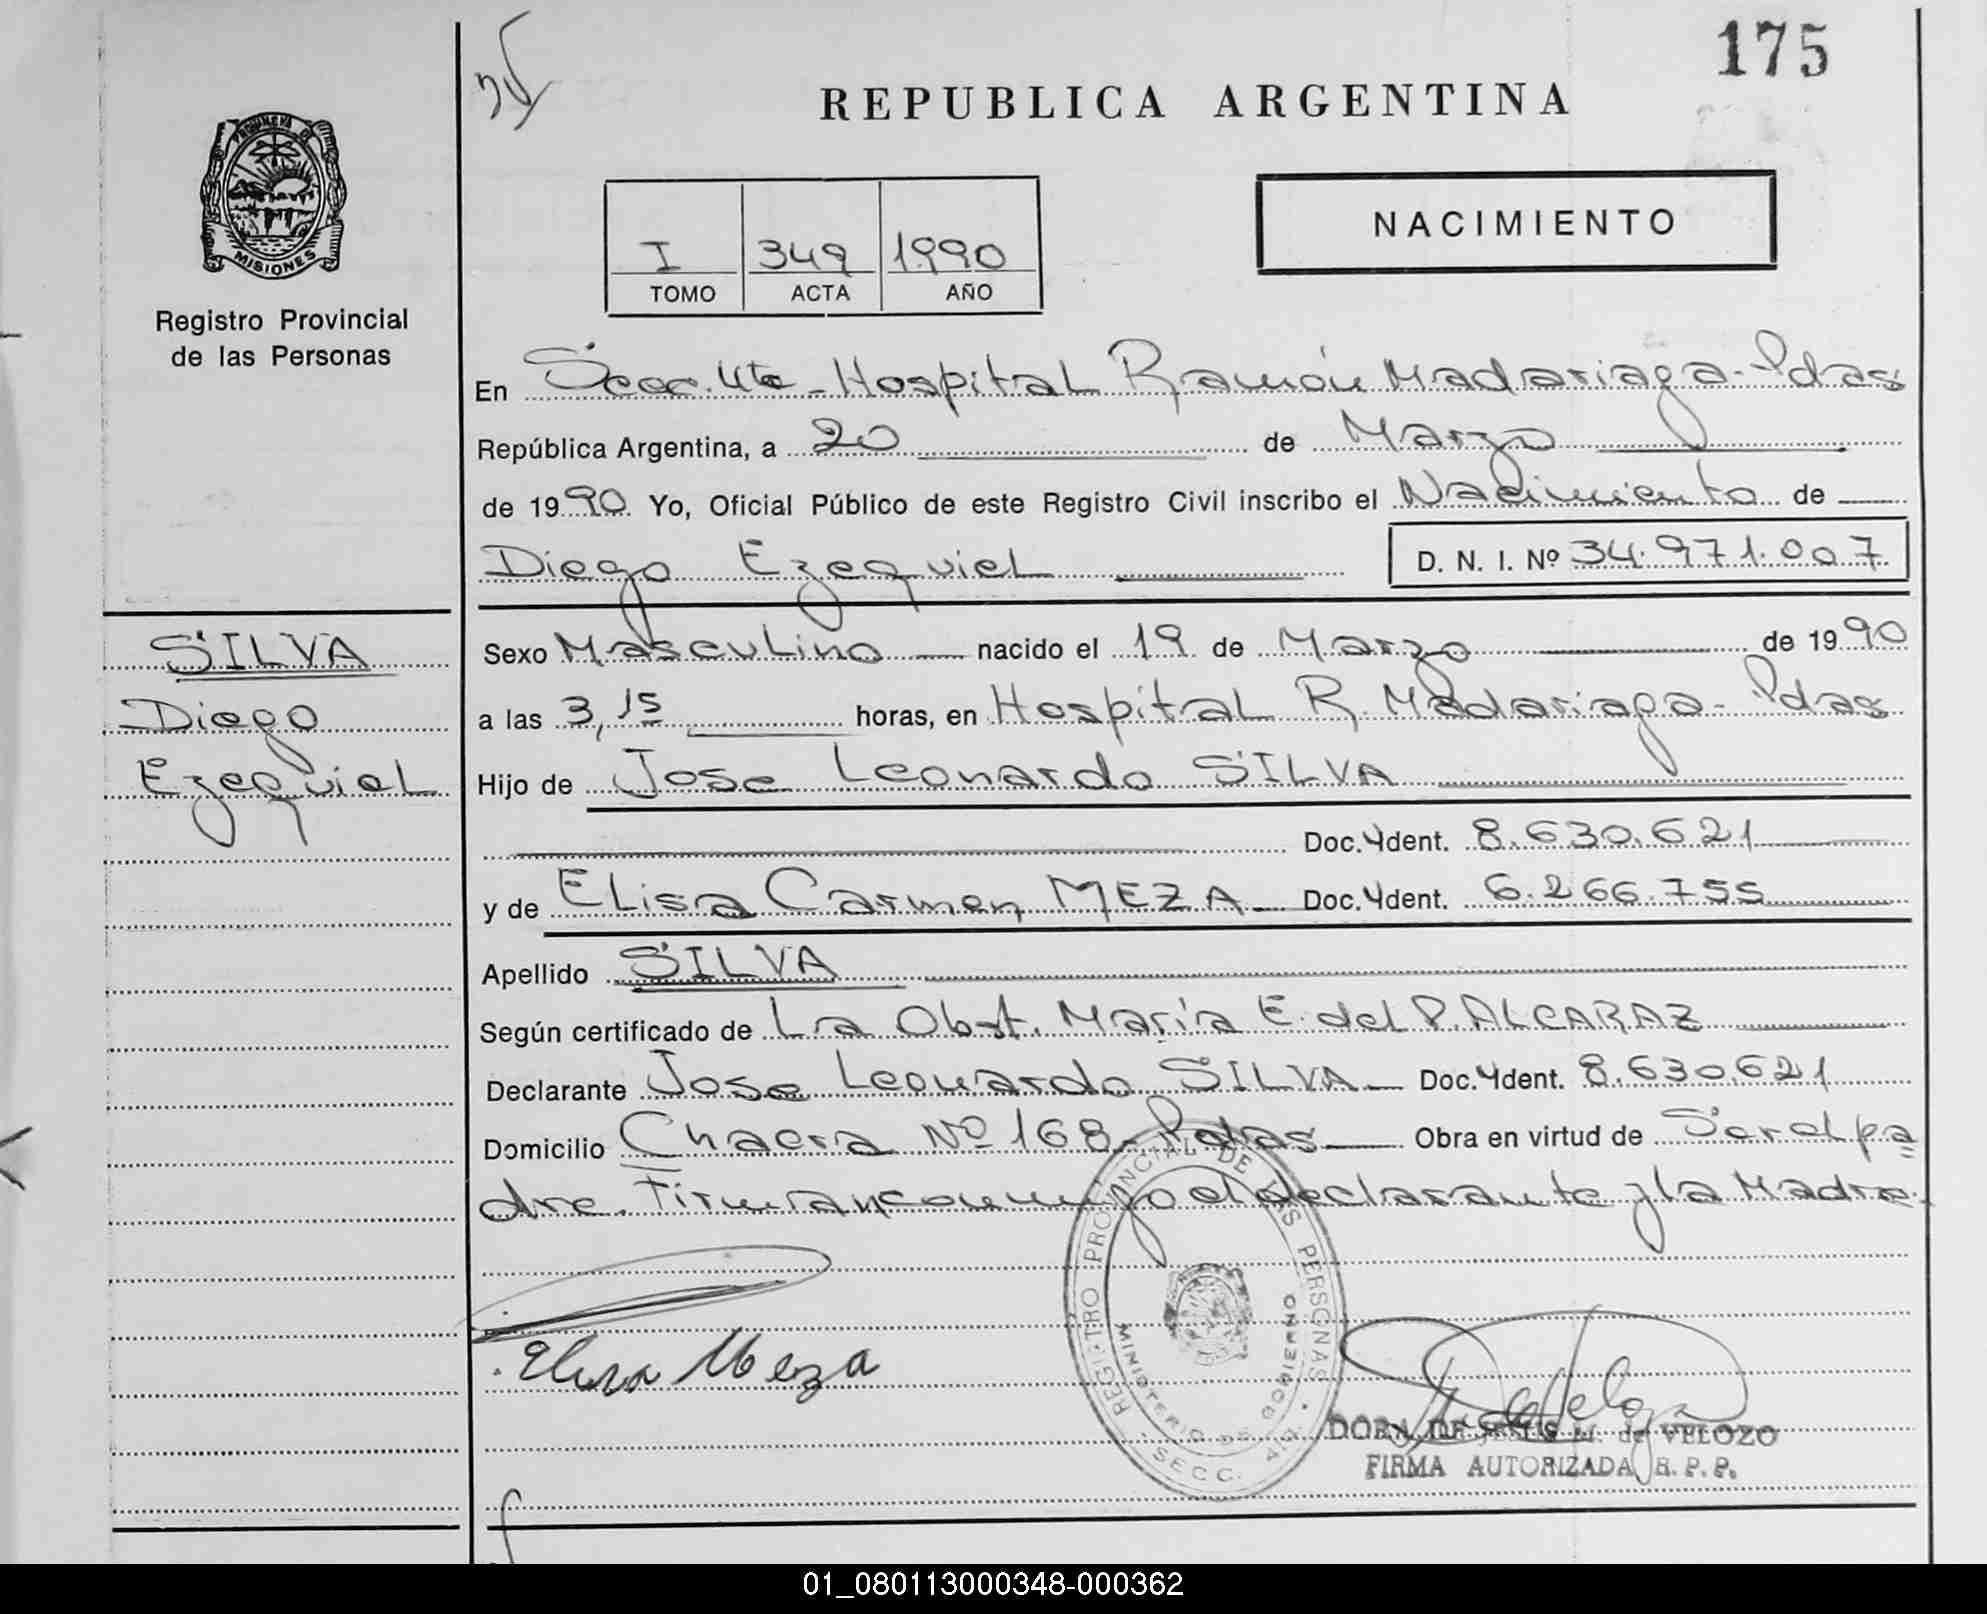 175
REPUBLICA ARGENTINA
PROVINCIA DE
MISIONES
Registro Provincial
de las Personas
I 349 1990
TOMO ACTA AÑO
NACIMIENTO
En Secc. 4ta - Hospital Ramón Madariaga - Pdas
República Argentina, a 20 de Marzo
de 1990 Yo, Oficial Público de este Registro Civil inscribo el Nacimiento de
Diego Ezequiel D. N. I. Nº 34.971.007
SILVA
Diego
Ezequiel
Sexo Masculino nacido el 19 de Marzo de 1990
a las 3,15 horas, en Hospital R. Madariaga - Pdas
Hijo de Jose Leonardo SILVA
Doc. Ydent. 8.630.621
y de Elisa Carmen MEZA Doc. Ydent. 6.266.755
Apellido SILVA
Según certificado de La Obst. María E. del P. ALCARAZ
Declarante Jose Leonardo SILVA Doc. Ydent. 8.630.621
Domicilio Chacra Nº 168 - Pdas Obra en virtud de Ser el pa
dre. Firman conmigo el declarante y la Madre.
Elisa Meza
REGISTRO PROVINCIAL DE LAS PERSONAS
MINISTERIO DE GOBIERNO
SECC. 4ta.
DORA DE JESUS M. de VELOZO
FIRMA AUTORIZADA R. P. P.
01_080113000348-000362